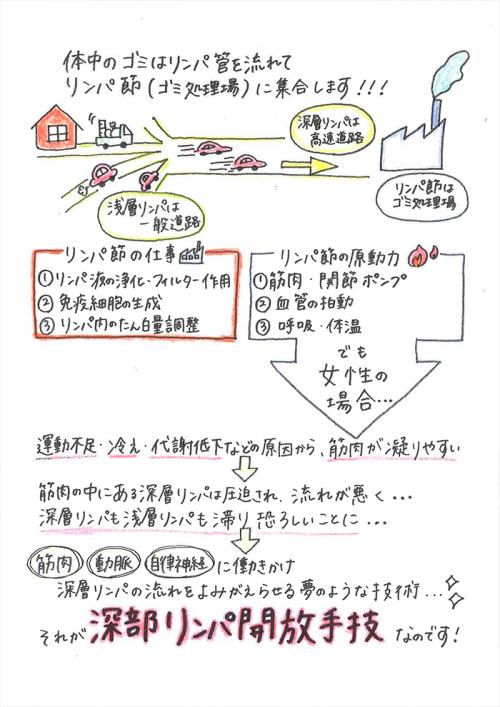 体中のゴミはリンパ管を流れて
リンパ節(ゴミ処理場)に集合します!!!
深層リンパは
高速道路
浅層リンパは
一般道路
リンパ節は
ゴミ処理場
リンパ節の仕事
①リンパ液の浄化・フィルター作用
②免疫細胞の生成
③リンパ内のたん白量調整
リンパ節の原動力
①筋肉・関節ポンプ
②血管の拍動
③呼吸・体温
でも
女性の
場合…
運動不足・冷え・代謝低下などの原因から、筋肉が凝りやすい
筋肉の中にある深層リンパは圧迫され、流れが悪く…
深層リンパも浅層リンパも滞り恐ろしいことに…
筋肉 動脈 自律神経に働きかけ
深層リンパの流れをよみがえらせる夢のような技術…
それが深部リンパ開放手技なのです!